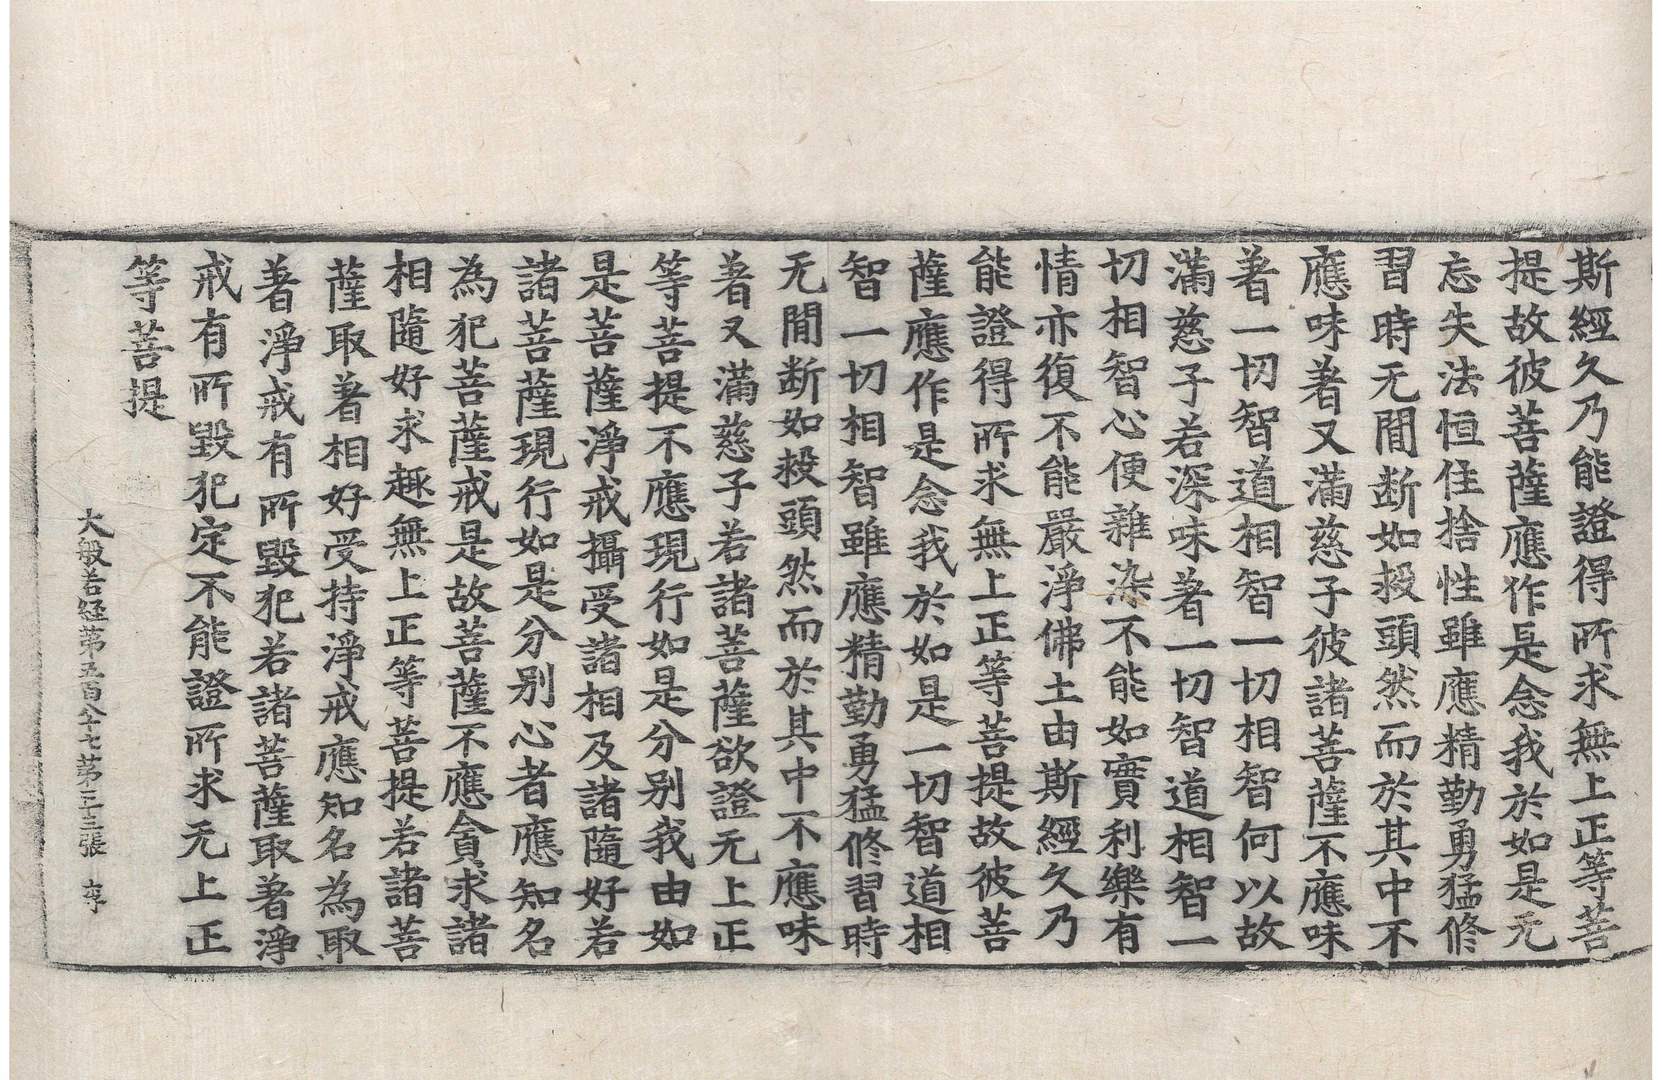 斯經久乃能證得所求無上正等菩
提故彼菩薩應作是念我於如是无
忘失法恒住捨性雖應精勤勇猛修
習時无閒断如救頭然而於其中不
應味著又滿慈子彼諸菩薩不應味
著一切智道相智一切相智何以故
滿慈子若深味著一切智道相智一
切相智心便雜染不能如實利樂有
情亦復不能嚴淨佛土由斯經久乃
能證得所求無上正等菩提故彼菩
薩應作是念我於如是一切智道相
智一切相智雖應精勤勇猛修習時
无閒断如救頭然而於其中不應味
著又滿慈子若諸菩薩欲證无上正
等菩提不應現行如是分别我由如
是菩薩淨戒攝受諸相及諸隨好若
諸菩薩現行如是分别心者應知名
為犯菩薩戒是故菩薩不應貪求諸
相隨好求趣無上正等菩提若諸菩
薩取著相好受持淨戒應知名為取
著淨戒有所毀犯若諸菩薩取著淨
戒有所毀犯定不能證所求无上正
等菩提
大般若経苐五百八十七苐三十三張